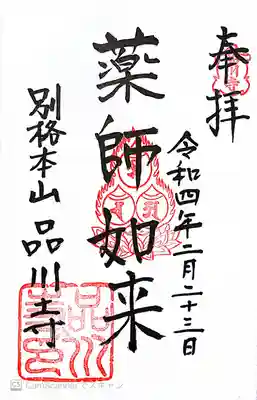 奉拝
令和四年二月二十三日
薬師如来
別格本山 品川寺
CS CamScanner でスキャン